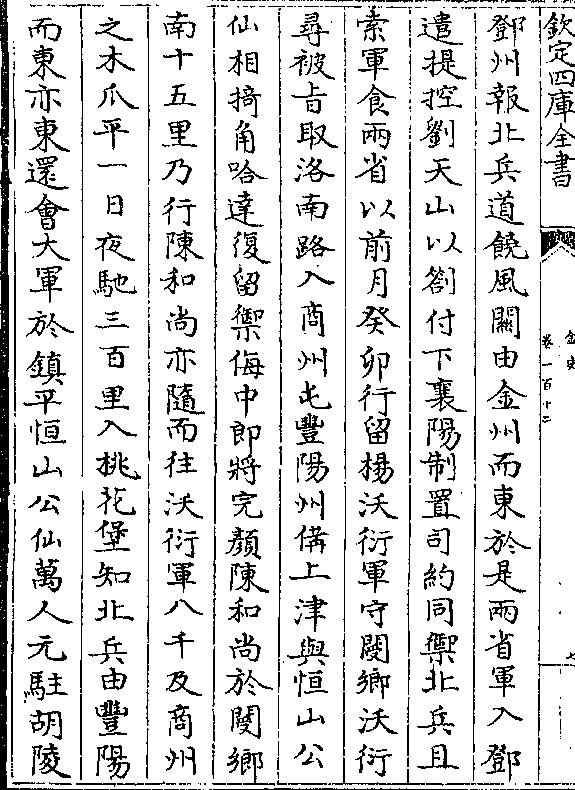 欽定四庫全書
金史
卷一百十二
七
鄧州報北兵道饒風關由金州而東於是兩省軍入鄧
遣提控劉天山以劄付下襄陽制置司約同禦北兵且
索軍食兩省以前月癸卯行留楊沃衍軍守閿鄉沃衍
尋被㫖取洛南路入商州屯豐陽州備上津與恒山公
仙相掎角哈達復留禦侮中郎將完顔陳和尚於閿鄉
南十五里乃行陳和尚亦隨而往沃衍軍八千及商州
之木爪平一日夜馳三百里入桃花堡知北兵由豐陽
而東亦東還會大軍於鎮平恒山公仙萬人元駐胡陵